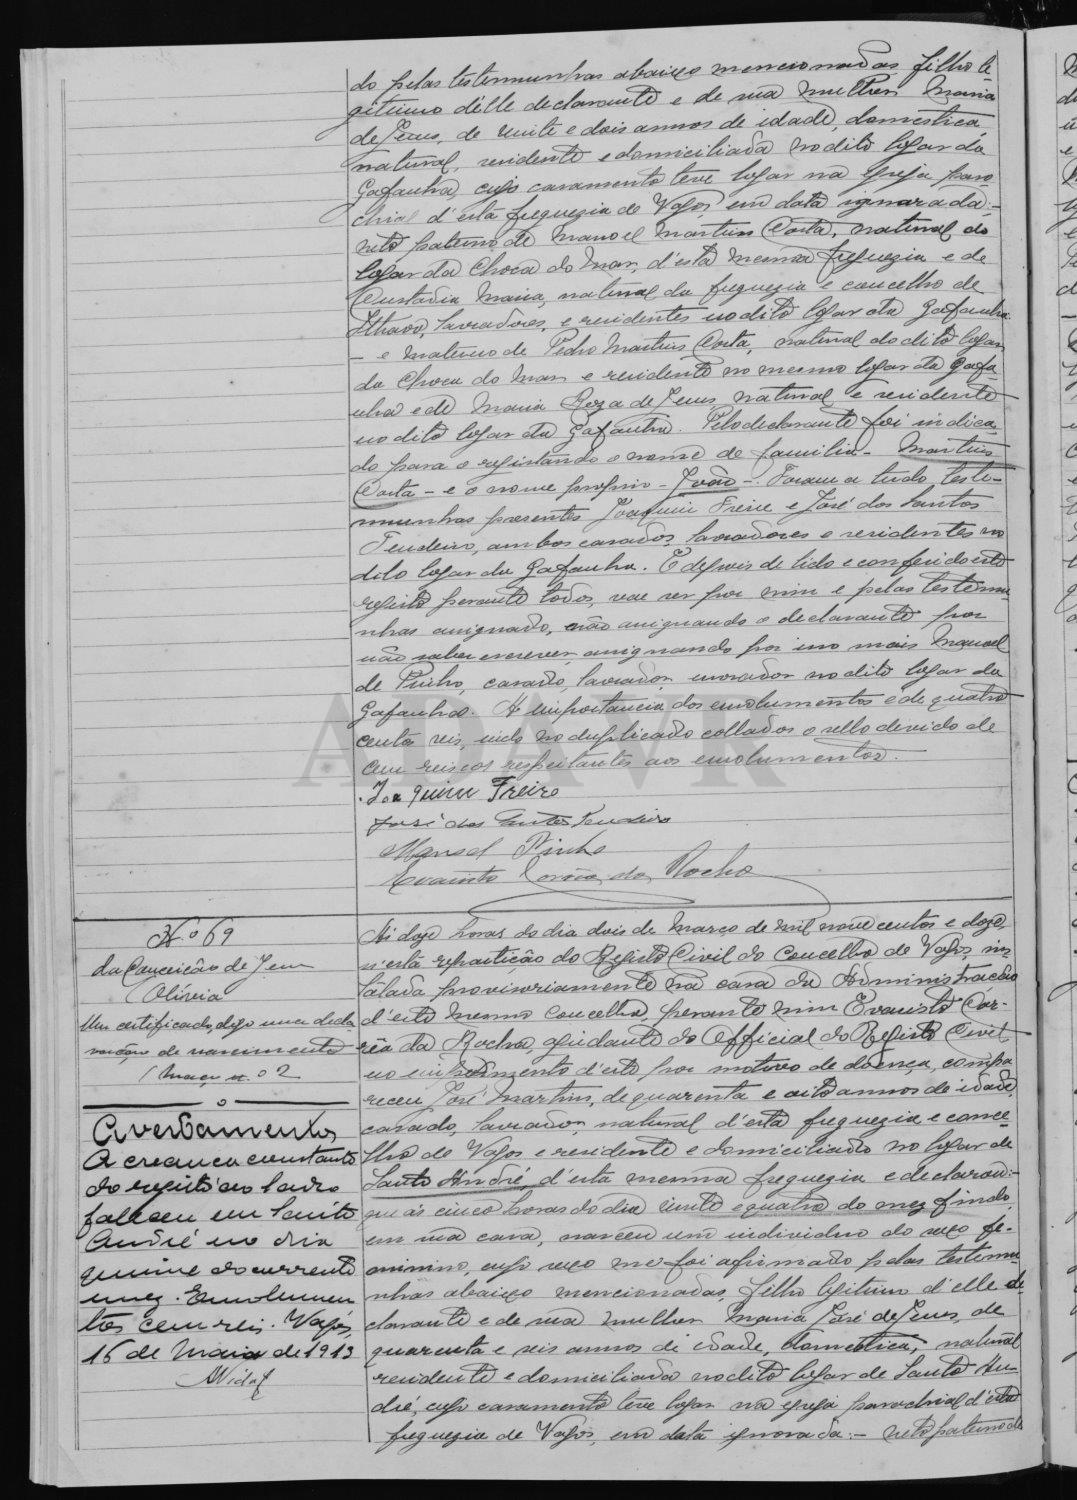 do pelas testemunhas abaixo mencionadas, filho le-
gitimo d'elle declarante e de sua mulher Maria
de Jesus, de vinte e dois annos de idade, domestica
natural, residente e domiciliada no dito logar da
Gafanha, cujo casamento teve logar na egreja paro-
chial d'esta freguezia de Vagos em data ignorada:-
neto paterno de Manoel Martins Costa, natural do
logar da Choca do Mar, d'esta mesma freguezia e de
Custodia Maria, natural da freguezia e concelho de
Ilhavo, lavradores, e residentes no dito logar da Gafanha
- e materno de Pedro Martins Costa, natural do dito logar
da Choca do Mar e residente no mesmo logar da Gafa-
nha e de Maria Roza de Jesus, natural e residente
no dito logar da Gafanha. Pelo declarante foi indica-
do para o registando o nome de familia - Martins
Costa - e o nome proprio - João -. Foram a tudo teste-
munhas presentes Joaquim Freire e José dos Santos
Tendeiro, ambos casados, lavradores e residentes no
dito logar da Gafanha. E depois de lido e conferido este
registo perante todos, vae ser por mim e pelas testemu-
nhas assignado, não assignando o declarante por
não saber escrever, assignando por isso mais Manoel
de Pinho, casado, lavrador, morador no dito logar da
Gafanha. A importancia dos emolumentos é de quatro
centos reis, indo no duplicado collados o sello devido de
cem reis e os respeitantes aos emolumentos.
Joaquim Freire
José dos Santos Tendeiro
Manoel Pinho
Evaristo Corrêa da Rocha
N.º 69
da Conceição de Jesus
Olivia
Um certificado, digo uma decla-
ração de nascimento
Maço n.º 2
Averbamento
A creança constante
do registo ao lado
faleceu em Santo
André no dia
quinze do corrente
mez. Emolumen
tos cem reis. Vagos,
16 de Maio de 1913
Vidal
Ás doze horas do dia dois de Março de mil nove centos e doze,
n'esta repartição do Registo Civil do Concelho de Vagos, ins-
talada provisoriamente na casa da Administração
d'este mesmo concelho, perante mim Evaristo Cor-
rêa da Rocha, ajudante do Official do Registo Civil
no impedimento d'este por motivo de doença, compa
receu José Martins, de quarenta e oito annos de idade,
casado, lavrador, natural d'esta freguezia e conce-
lho de Vagos e residente e domiciliado no logar de
Santo André, d'esta mesma freguezia e declarou:-
que ás cinco horas do dia vinte e quatro do mez findo,
em sua casa, nasceu um individuo do sexo fe-
minino, cujo sexo me foi afirmado pelas testemu-
nhas abaixo mencionadas, filho legitimo d'elle de-
clarante e de sua mulher Maria José de Jesus, de
quarenta e seis annos de idade, domestica, natural
residente e domiciliada no dito logar de Santo An-
dré, cujo casamento teve logar na egreja parochial d'esta
freguezia de Vagos, em data ignorada:- neto paterno de